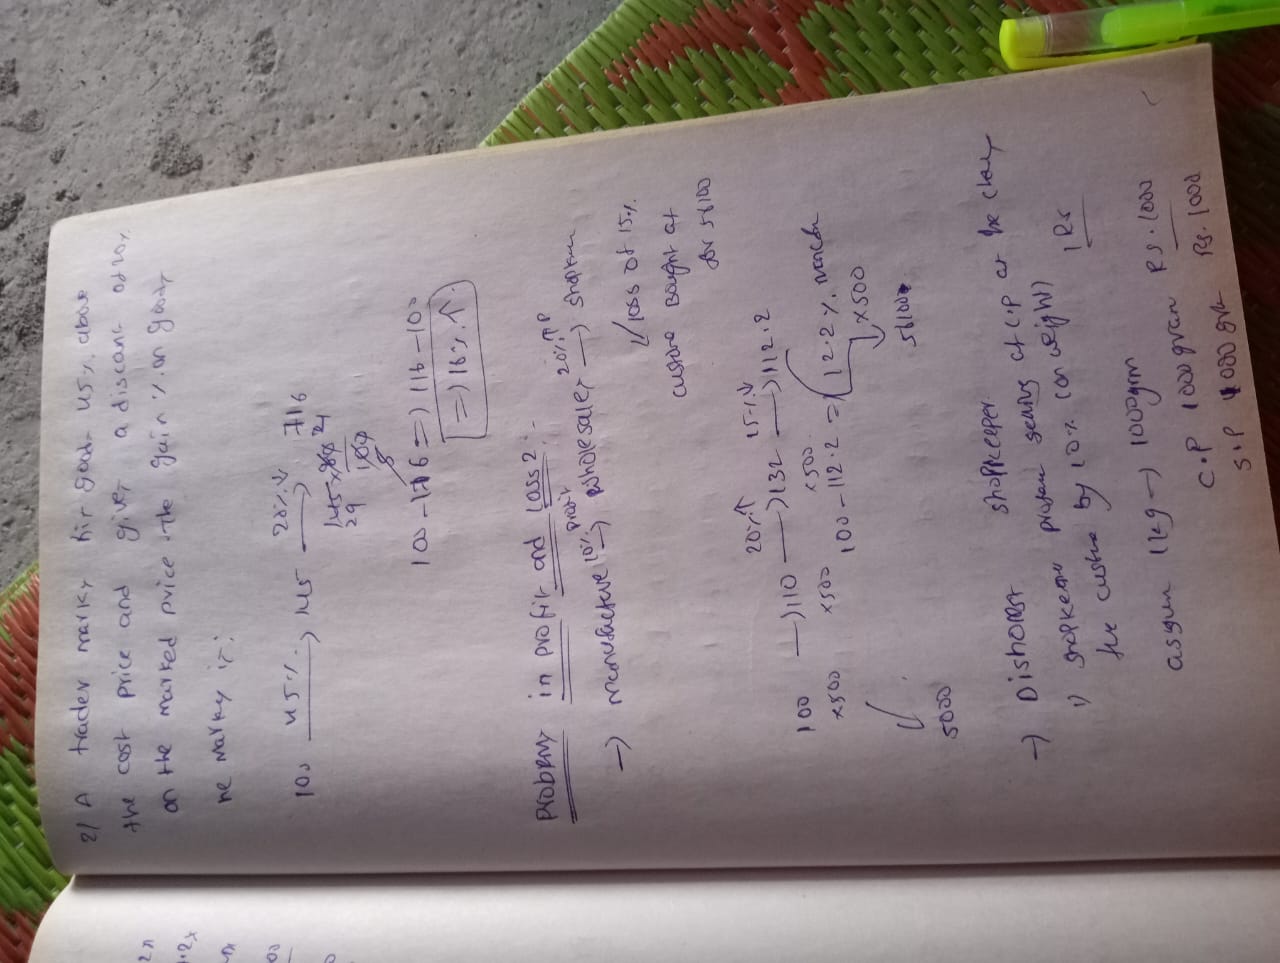 2) A trader marks his goods 45% above
the cost price and gives a discount of 20%
on the marked price. the gain % on goods
he marks is:
100 45% 145 20%↓ 116
145 × 80
29
100
100 - 116 => 116 - 100
=> 16% ↑
Problems in profit and loss 2:-
→ manufacture 10% profit → wholesaler 20% ↑ P → shopkeeper
loss of 15%
custome bought at
for 56100
100 → 110 20%↑ → 132 15%↓ → 112.2
×500 ×500 ×500
100 - 112.2 => 12.2%
×500
5000
56100
→ Dishonest shopkeeper
1) shopkeeper profess selling at C.P at he cheat
the custome by 10% (on weight)
1 Rs
assum 1kg → 1000gram
C.P 1000 gram Rs. 1000
S.P 1000 gra Rs. 1000
2x
.2x